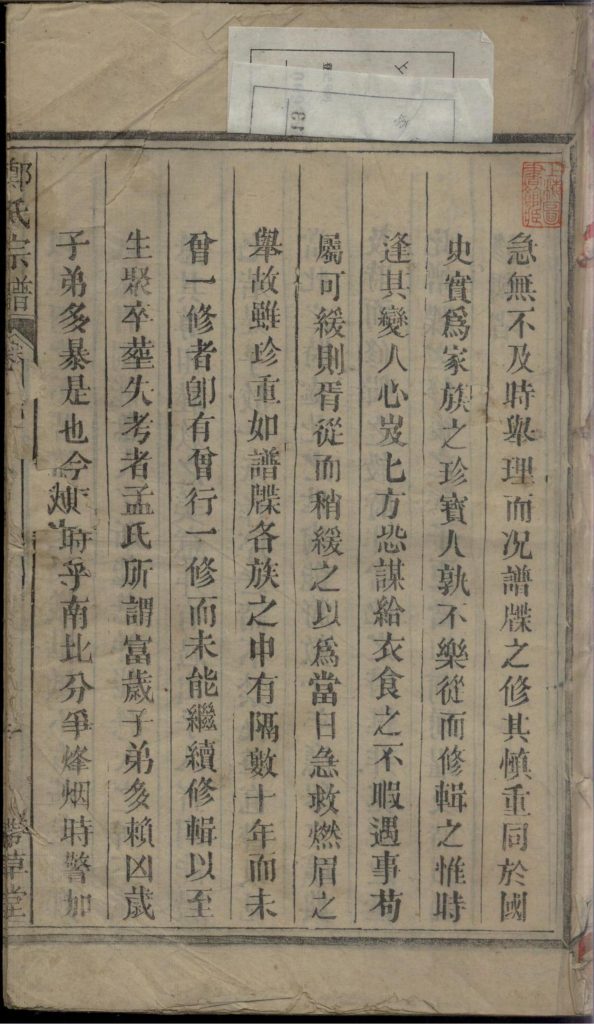 急無不及時舉理而况譜牒之修其慎重同於國
史實爲家族之珍寶人孰不樂從而修輯之惟時
逢其變人心岌七方恐謀給衣食之不暇遇事茍
屬可緩則胥從而稍緩之以爲當日急救燃眉之
舉故雖珍重如譜牒各族之中有隔數十年而未
曾一修者卽有曾行一修而未能繼續修輯以至
生娶卒塟失考者孟氏所謂富歲子弟多賴凶歲
子弟多暴是也今時乎南北分爭烽烟時警加
鄭氏宗譜 卷 帶草堂
13